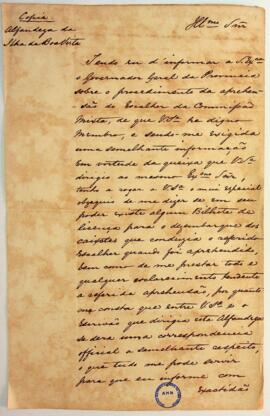 Copia
Alfandega da
Ilha da Boa Vista
Illmo Snr
Tendo eu d'informar a S. Exª
o Governador Geral da Provincia
sobre o procedimento da aprehen-
são do Escaler da Commissão
Mixta, de que V.Sª he digno
Membro, e sendo-me exigida
uma semelhante informação
em virtude da queixa que V.Sª
dirigio ao mesmo Exmo Snr,
tenho a rogar a V.Sª o mui especial
obsequio de me dizer se em seu
poder existe algum Bilhete de
licença para o desembarque dos
caixotes que conduzia o referido
Escaler quando foi aprehendido,
bem como de me prestar todo e
qualquer esclarecimento tendente
a referida aprehensão, por quanto
me consta que entre V.Sª e o
Escrivão que dirigia esta Alfandega
se dera uma correspondencia
official a semelhante respeito,
o que tudo me pode servir
para que eu informe com
Exactidão
AHN